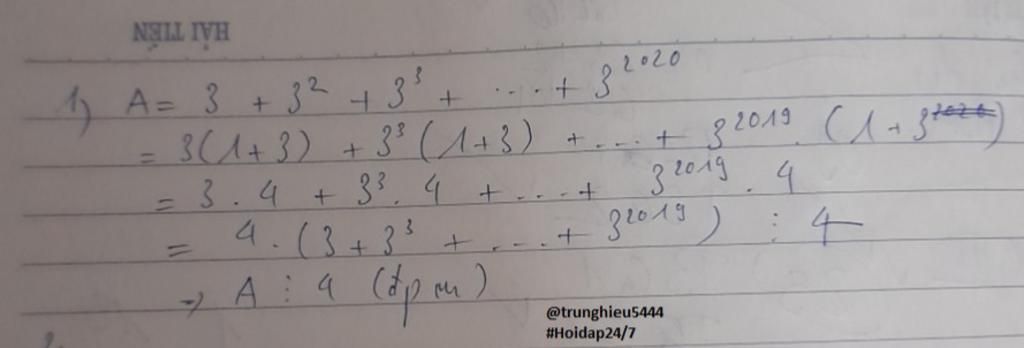 HẢI TIẾN
1) A = 3 + 3² + 3³ + ... + 3²⁰²⁰
= 3(1+3) + 3³(1+3) + ... + 3²⁰¹⁹.(1+3)
= 3.4 + 3³.4 + ... + 3²⁰¹⁹.4
= 4.(3 + 3³ + ... + 3²⁰¹⁹) ⋮ 4
→ A ⋮ 4 (đpcm)
@trunghieu5444
#Hoidap24/7